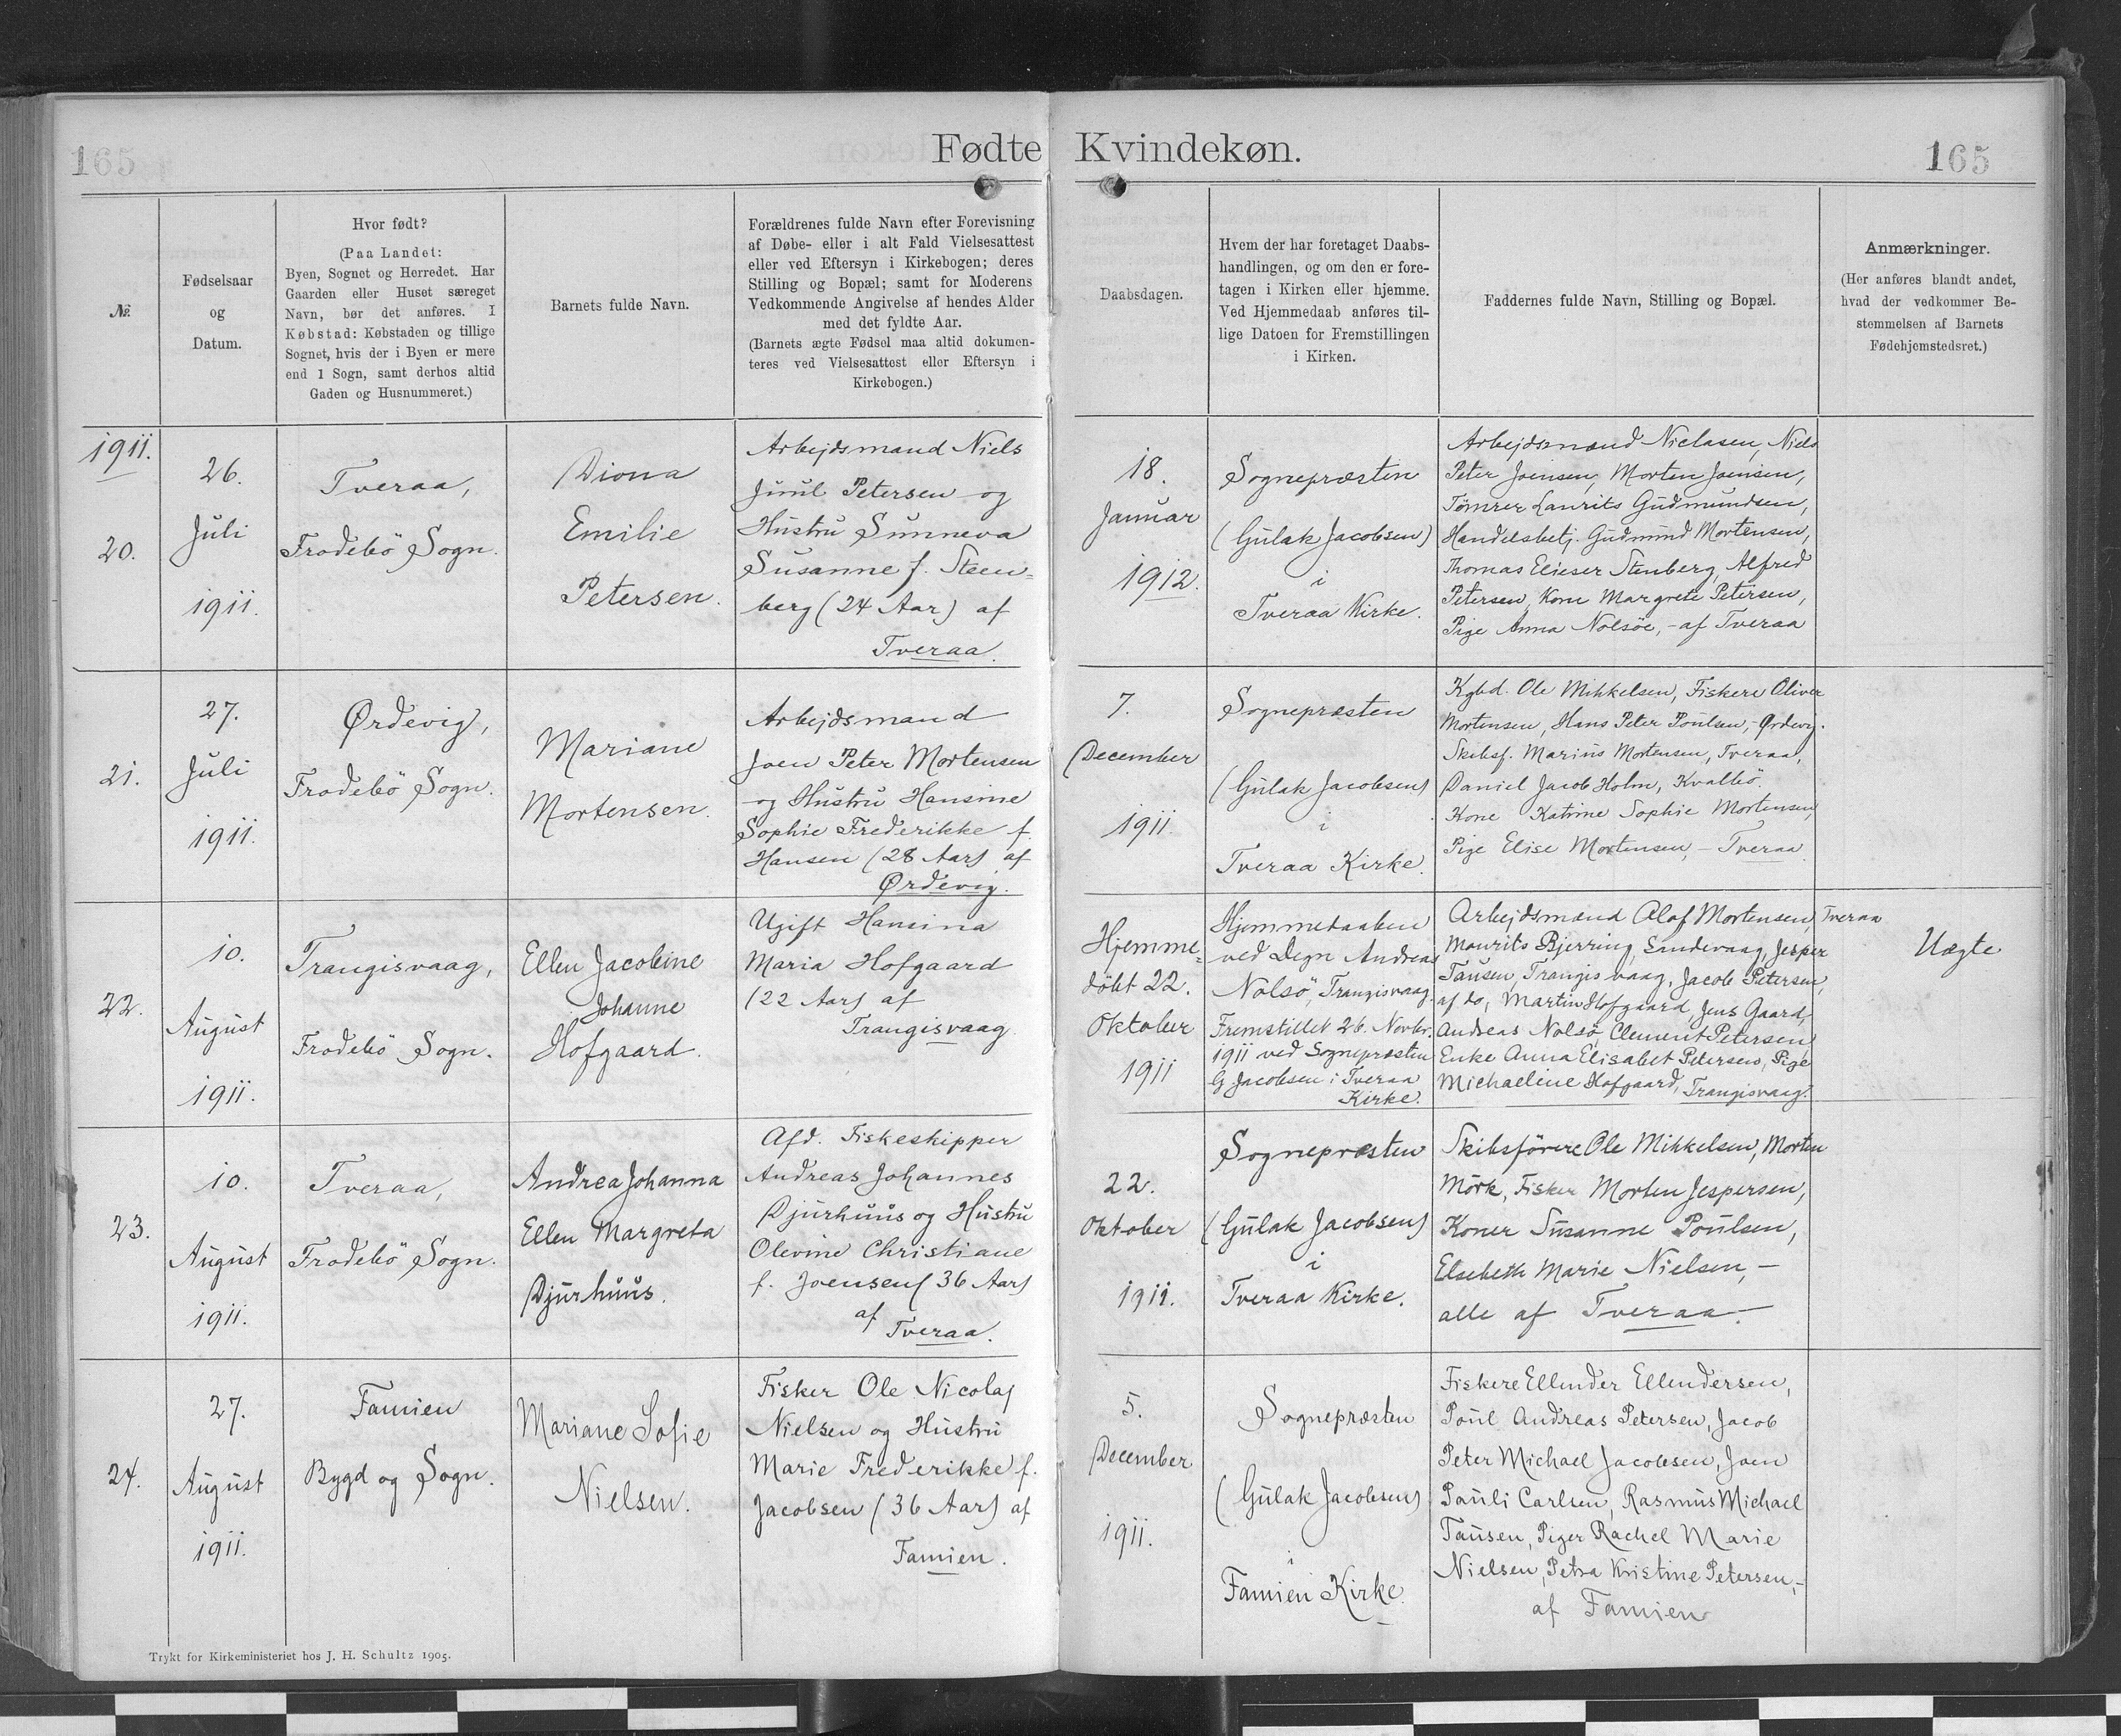 165
Fødte Kvindekøn.
165
№
Fødselsaar
og
Datum.
Hvor født?
(Paa Landet:
Byen, Sognet og Herredet. Har
Gaarden eller Huset særeget
Navn, bør det anføres. I
Købstad: Købstaden og tillige
Sognet, hvis der i Byen er mere
end 1 Sogn, samt derhos altid
Gaden og Husnummeret.)
Barnets fulde Navn.
Forældrenes fulde Navn efter Forevisning
af Døbe- eller i alt Fald Vielsesattest
eller ved Eftersyn i Kirkebogen; deres
Stilling og Bopæl; samt for Moderens
Vedkommende Angivelse af hendes Alder
med det fyldte Aar.
(Barnets ægte Fødsel maa altid dokumen-
teres ved Vielsesattest eller Eftersyn i
Kirkebogen.)
Daabsdagen.
Hvem der har foretaget Daabs-
handlingen, og om den er fore-
tagen i Kirken eller hjemme.
Ved Hjemmedaab anføres til-
lige Datoen for Fremstillingen
i Kirken.
Faddernes fulde Navn, Stilling og Bopæl.
Anmærkninger.
(Her anføres blandt andet,
hvad der vedkommer Be-
stemmelsen af Barnets
Fødehjemstedsret.)
1911.
20.
26.
Juli
1911.
Tveraa,
Frodebö Sogn.
Diona
Emilie
Petersen.
Arbejdsmand Niels
Juul Petersen og
Hustru Sunneva
Susanne f. Steen-
berg (24 Aar) af
Tveraa.
18.
Januar
1912.
Sognepræsten
(Gulak Jacobsen)
i
Tveraa Kirke.
Arbejdsmænd Niclasen, Niels
Peter Joensen, Morten Joensen,
Tömrer Laurits Gudmundsen,
Handelsbetj. Gudmund Mortensen,
Thomas Elieser Stenberg, Alfred
Petersen, Kone Margrete Petersen,
Pige Anna Nolsöe, - af Tveraa
21.
27.
Juli
1911.
Ørdevig,
Frodebö Sogn.
Mariane
Mortensen.
Arbejdsmand
Joen Peter Mortensen
og Hustru Hansine
Sophie Frederikke f.
Hansen (28 Aar) af
Ørdevig.
7.
December
1911.
Sognepræsten
(Gulak Jacobsen)
i
Tveraa Kirke.
Kgbd. Ole Mikkelsen, Fiskere Oliver
Mortensen, Hans Peter Poulsen, - Ørdevig.
Skibsf. Marius Mortensen, Tveraa,
Daniel Jacob Holm, Kvalbö.
Kone Katrine Sophie Mortensen,
Pige Elise Mortensen, - Tveraa.
22.
10.
August
1911.
Trangisvaag,
Frodebö Sogn.
Ellen Jacobine
Johanne
Hofgaard.
Ugift Hansina
Maria Hofgaard
(22 Aar) af
Trangisvaag.
Hjemme-
döbt 22.
Oktober
1911
Hjemmedaaben
ved Degn Andreas
Nolsö, Trangisvaag.
Fremstillet 26. Novbr.
1911 ved Sognepræsten
G Jacobsen i Tveraa
Kirke.
Arbejdsmænd Olaf Mortensen, Tveraa
Maurits Bjerring, Sandevaag, Jesper
Tausen, Trangisvaag, Jacob Petersen,
af do, Martin Hofgaard, Jens Gaard,
Andreas Nolsö, Clement Petersen
Enke Anna Elisabet Petersen, Pige
Michaeline Hofgaard, Trangisvaag.
Uægte
23.
10.
August
1911.
Tveraa,
Frodebö Sogn.
Andrea Johanna
Ellen Margreta
Djurhuus.
Afd. Fiskeskipper
Andreas Johannes
Djurhuus og Hustru
Olevine Christiane
f. Joensen (36 Aar)
af
Tveraa.
22.
Oktober
1911.
Sognepræsten
(Gulak Jacobsen)
i
Tveraa Kirke.
Skibsförere Ole Mikkelsen, Morten
Mörk, Fisker Morten Jespersen,
Koner Susanne Poulsen,
Elsebeth Marie Nielsen, -
alle af Tveraa.
24.
27.
August
1911.
Famien
Bygd og Sogn.
Mariane Sofie
Nielsen.
Fisker Ole Nicolaj
Nielsen og Hustru
Marie Frederikke f.
Jacobsen (36 Aar) af
Famien.
5.
December
1911.
Sognepræsten
(Gulak Jacobsen)
i
Famien Kirke.
Fiskere Ellender Ellendersen,
Poul Andreas Petersen, Jacob
Peter Michael Jacobsen, Joen
Pauli Carlsen, Rasmus Michael
Tausen, Piger Rachel Marie
Nielsen, Petra Kristine Petersen, -
af Famien
Trykt for Kirkeministeriet hos J. H. Schultz 1905.